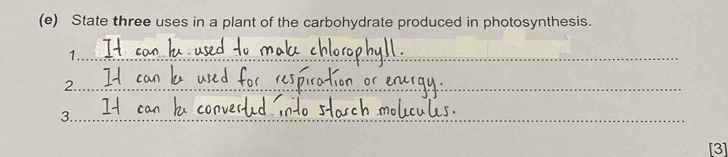 (e) State three uses in a plant of the carbohydrate produced in photosynthesis.
1. It can be used to make chlorophyll.
2. It can be used for respiration or energy.
3. It can be converted into starch molecules.
[3]